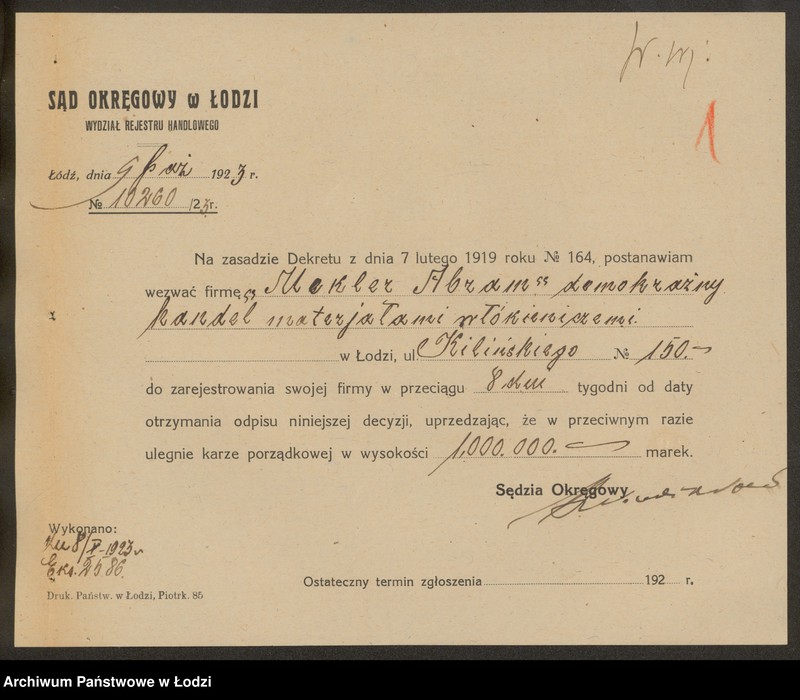 SĄD OKRĘGOWY w ŁODZI
WYDZIAŁ REJESTRU HANDLOWEGO
1
Łódź, dnia 9 Paź 1923 r.
№ 10260 /23r.
Na zasadzie Dekretu z dnia 7 lutego 1919 roku № 164, postanawiam
wezwać firmę „Mekler Abram" domokrążny
handel materjałami włókienniczemi
w Łodzi, ul. Kilińskiego № 150.-
do zarejestrowania swojej firmy w przeciągu 8 dni tygodni od daty
otrzymania odpisu niniejszej decyzji, uprzedzając, że w przeciwnym razie
ulegnie karze porządkowej w wysokości 1,000.000.- marek.
Sędzia Okręgowy
Wykonano:
1923 r
Druk. Państw. w Łodzi, Piotrk. 85
Ostateczny termin zgłoszenia 192 r.
Archiwum Państwowe w Łodzi